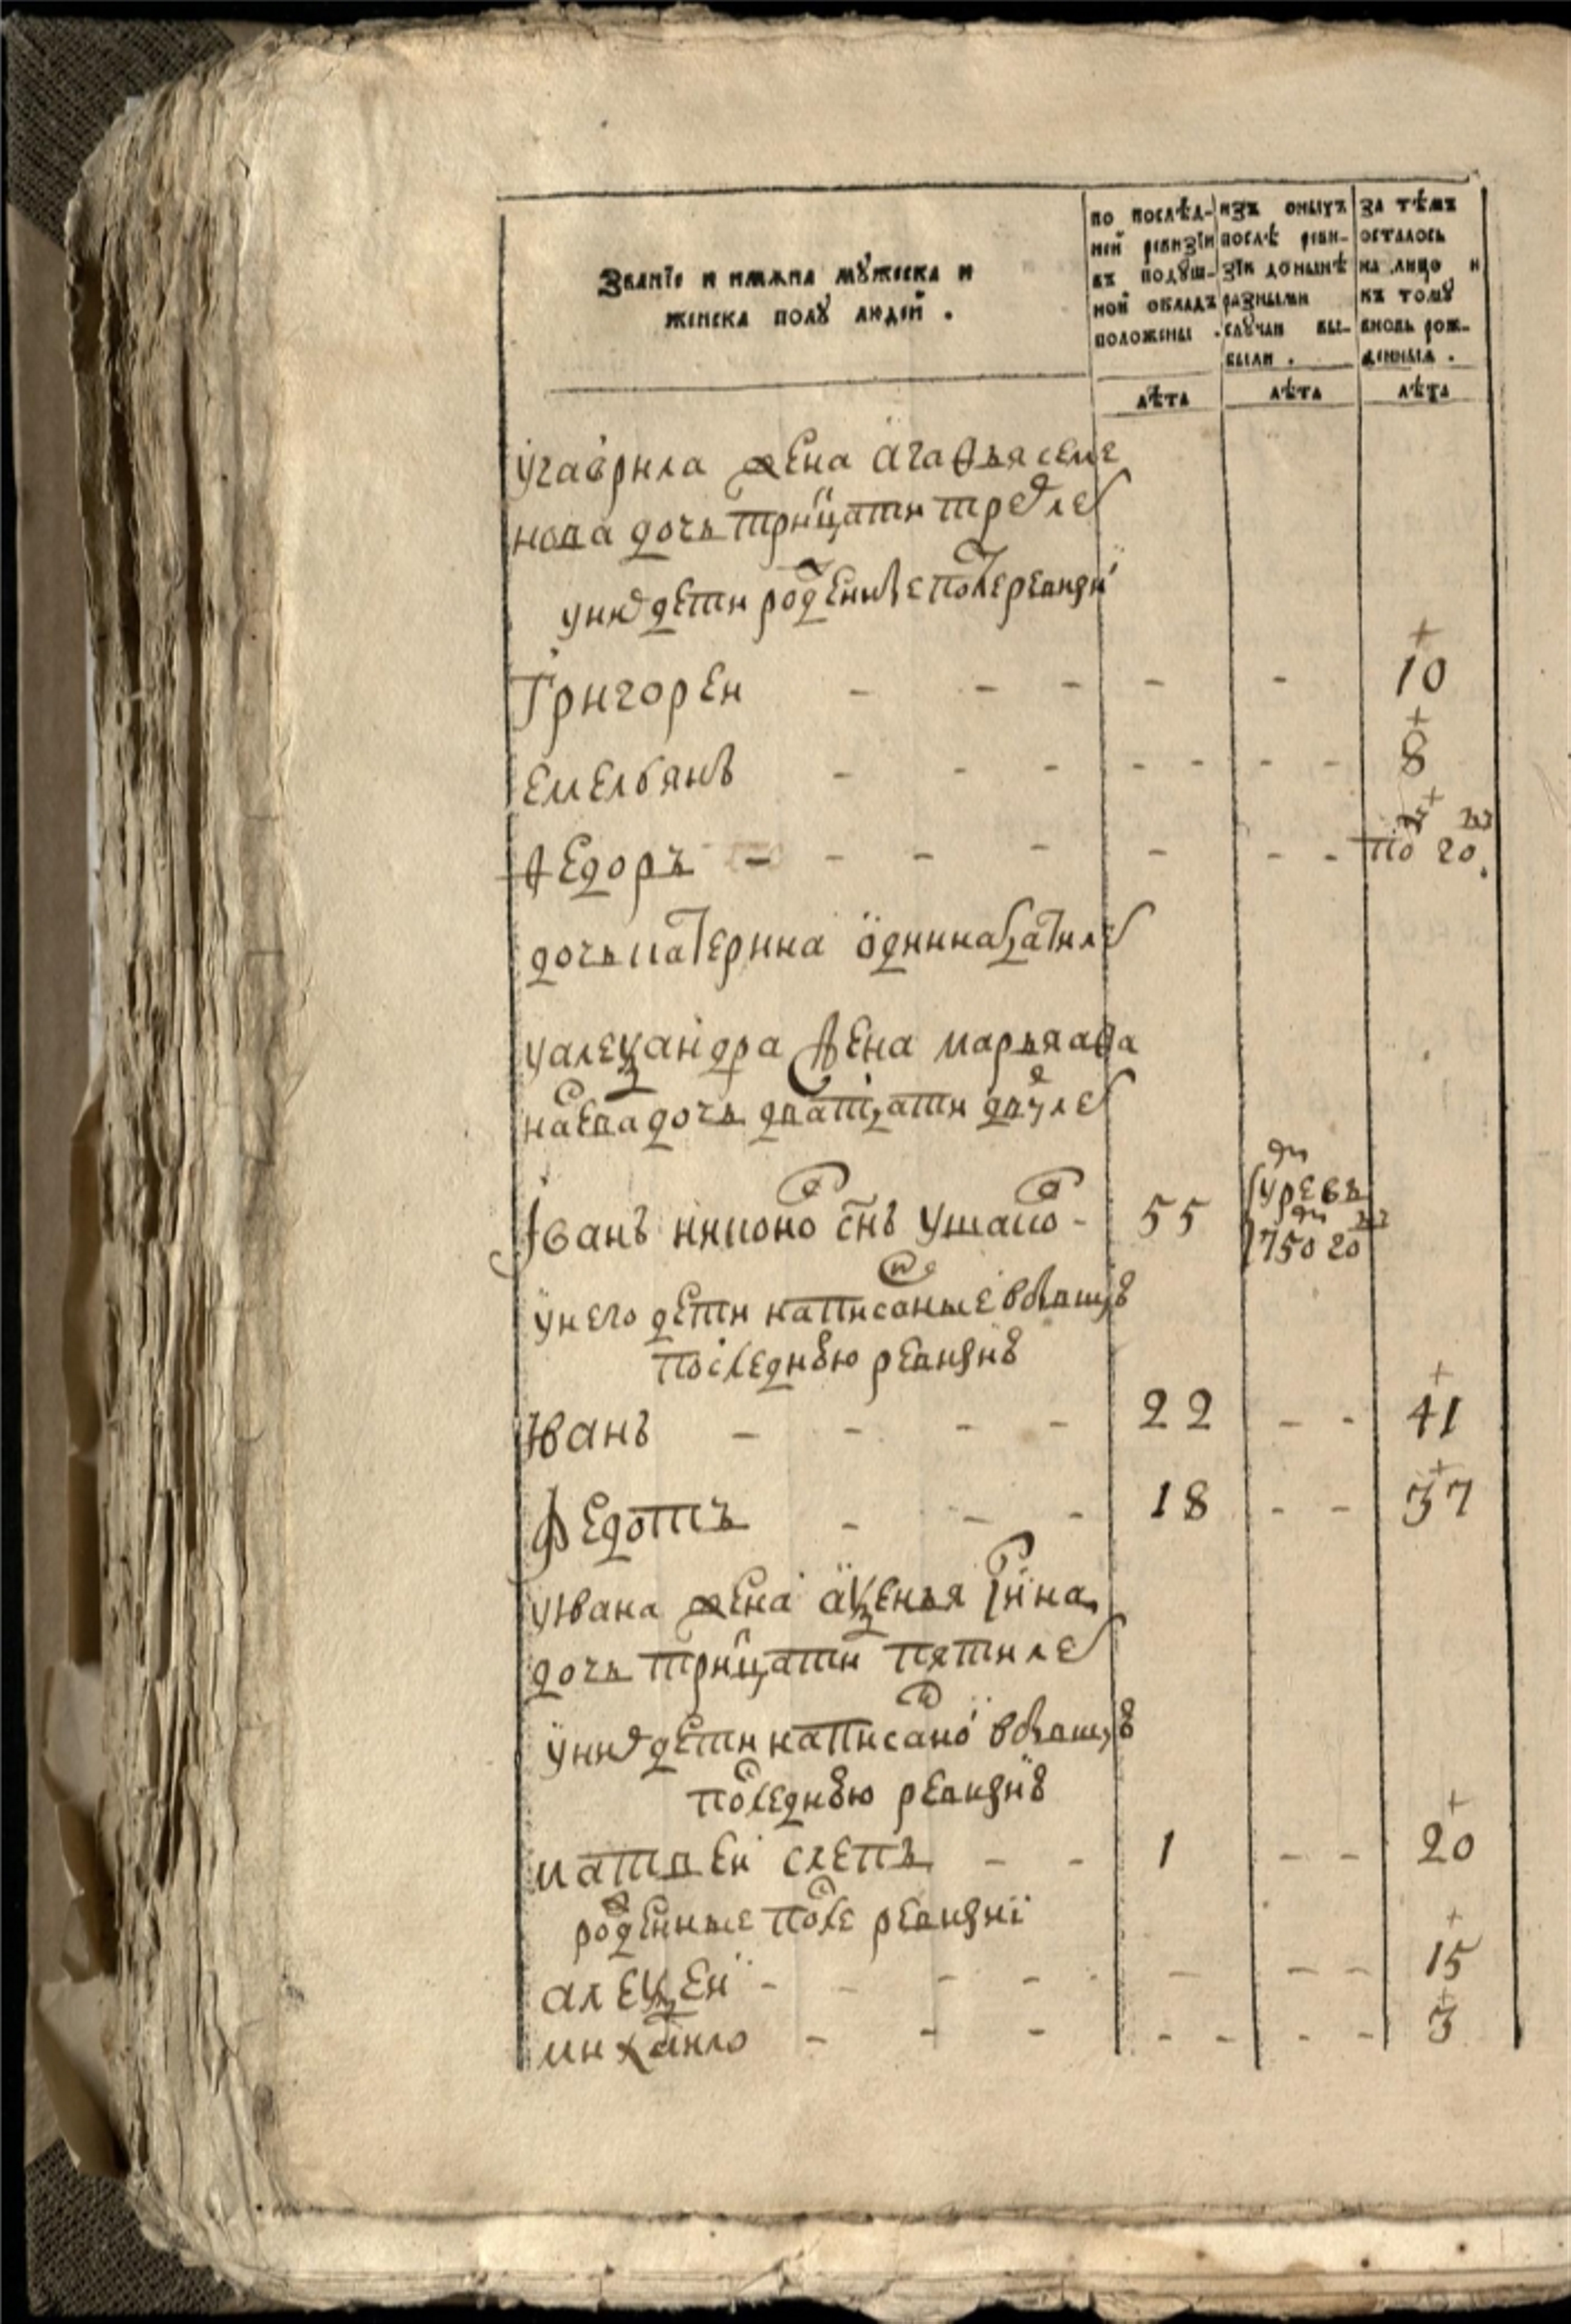 Званїе и имѧна мꙋжеска и
женска полꙋ людей .
по послѣд-
ней ревизїи
въ подꙋш-
ной окладъ
положены .
изъ оныхъ
послѣ реви-
зїи донынѣ
разными
слꙋчаи вы-
были .
за тѣмъ
осталось
на лицо и
къ томꙋ
вновь рож-
денныѧ .
лѣта лѣта лѣта
у гаврила жена агафья семе
нова дочь тритцати трех лет
у них дети рожденные после ревизи
Григореи - - - - - 10
емельянъ - - - - - - - 8
Федоръ - - - - - - - по 20
дочь катерина одиннатцати лет
у алеѯандра жена марья афа
насева дочь дватцати двух лет
Иванъ никонов снъ ушаков - 55 умре въ 1750 го
у него дети написанные в бывшую
последнюю ревизию
Иванъ - - - - 22 - - 41
Федотъ - - - 18 - - 37
у Ивана жена аѯенья
дочь тритцати пяти лет
у них дети написанои в бывшую
последнюю ревизию
матвеи слепъ - - 1 - - 20
рожденные после ревизиї
алеѯеи - - - - - - - 15
михаило - - - - - - - 3